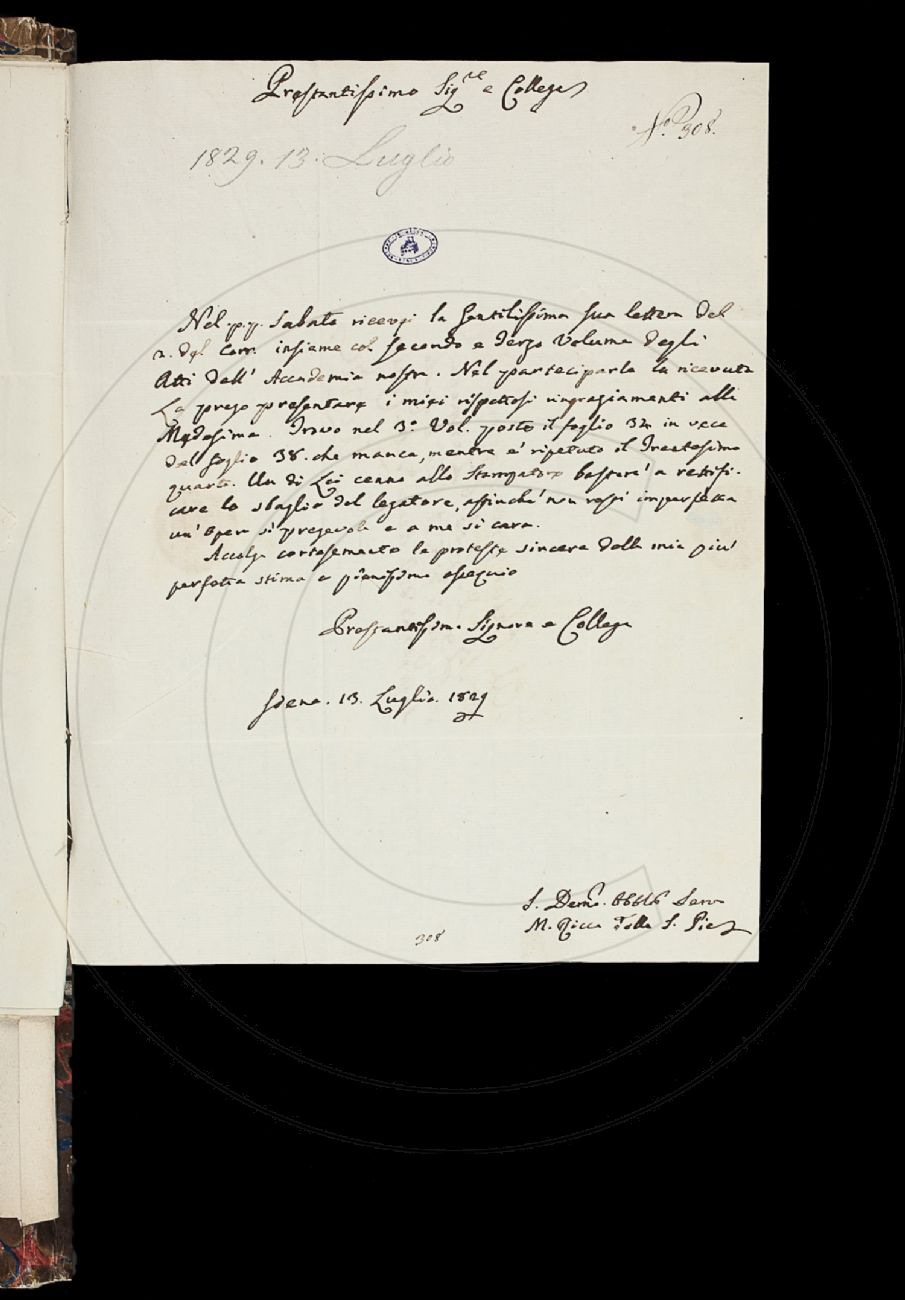 Prestantissimo Sig.re e Collega
N.o 308.
1829. 13. Luglio
Nel p.p. Sabato ricevei la Gentilissima sua lettera del
2. del Corr. insieme col secondo e terzo Volume degli
Atti dell' Accademia nostra. Nel parteciparle la ricevuta
La prego presentare i miei rispettosi ringraziamenti alla
Medesima. Trovo nel 3.o Vol. posto il foglio 34 in vece
del foglio 38. che manca, mentre e' ripetuto il Trentesimo
quarto. Un di Lei cenno allo Stampatore bastera' a rettifi-
care lo sbaglio del legatore, affinche' non resti imperfetta
un' opera si' pregevole e a me si cara.
Accolga cortesemente le proteste sincere della mia piu'
perfetta stima e pienissimo ossequio
Prestantissimo Signore e Collega
Siena. 13. Luglio. 1829
S. Devmo. Serv
M. Ricca delle S. Pie
308